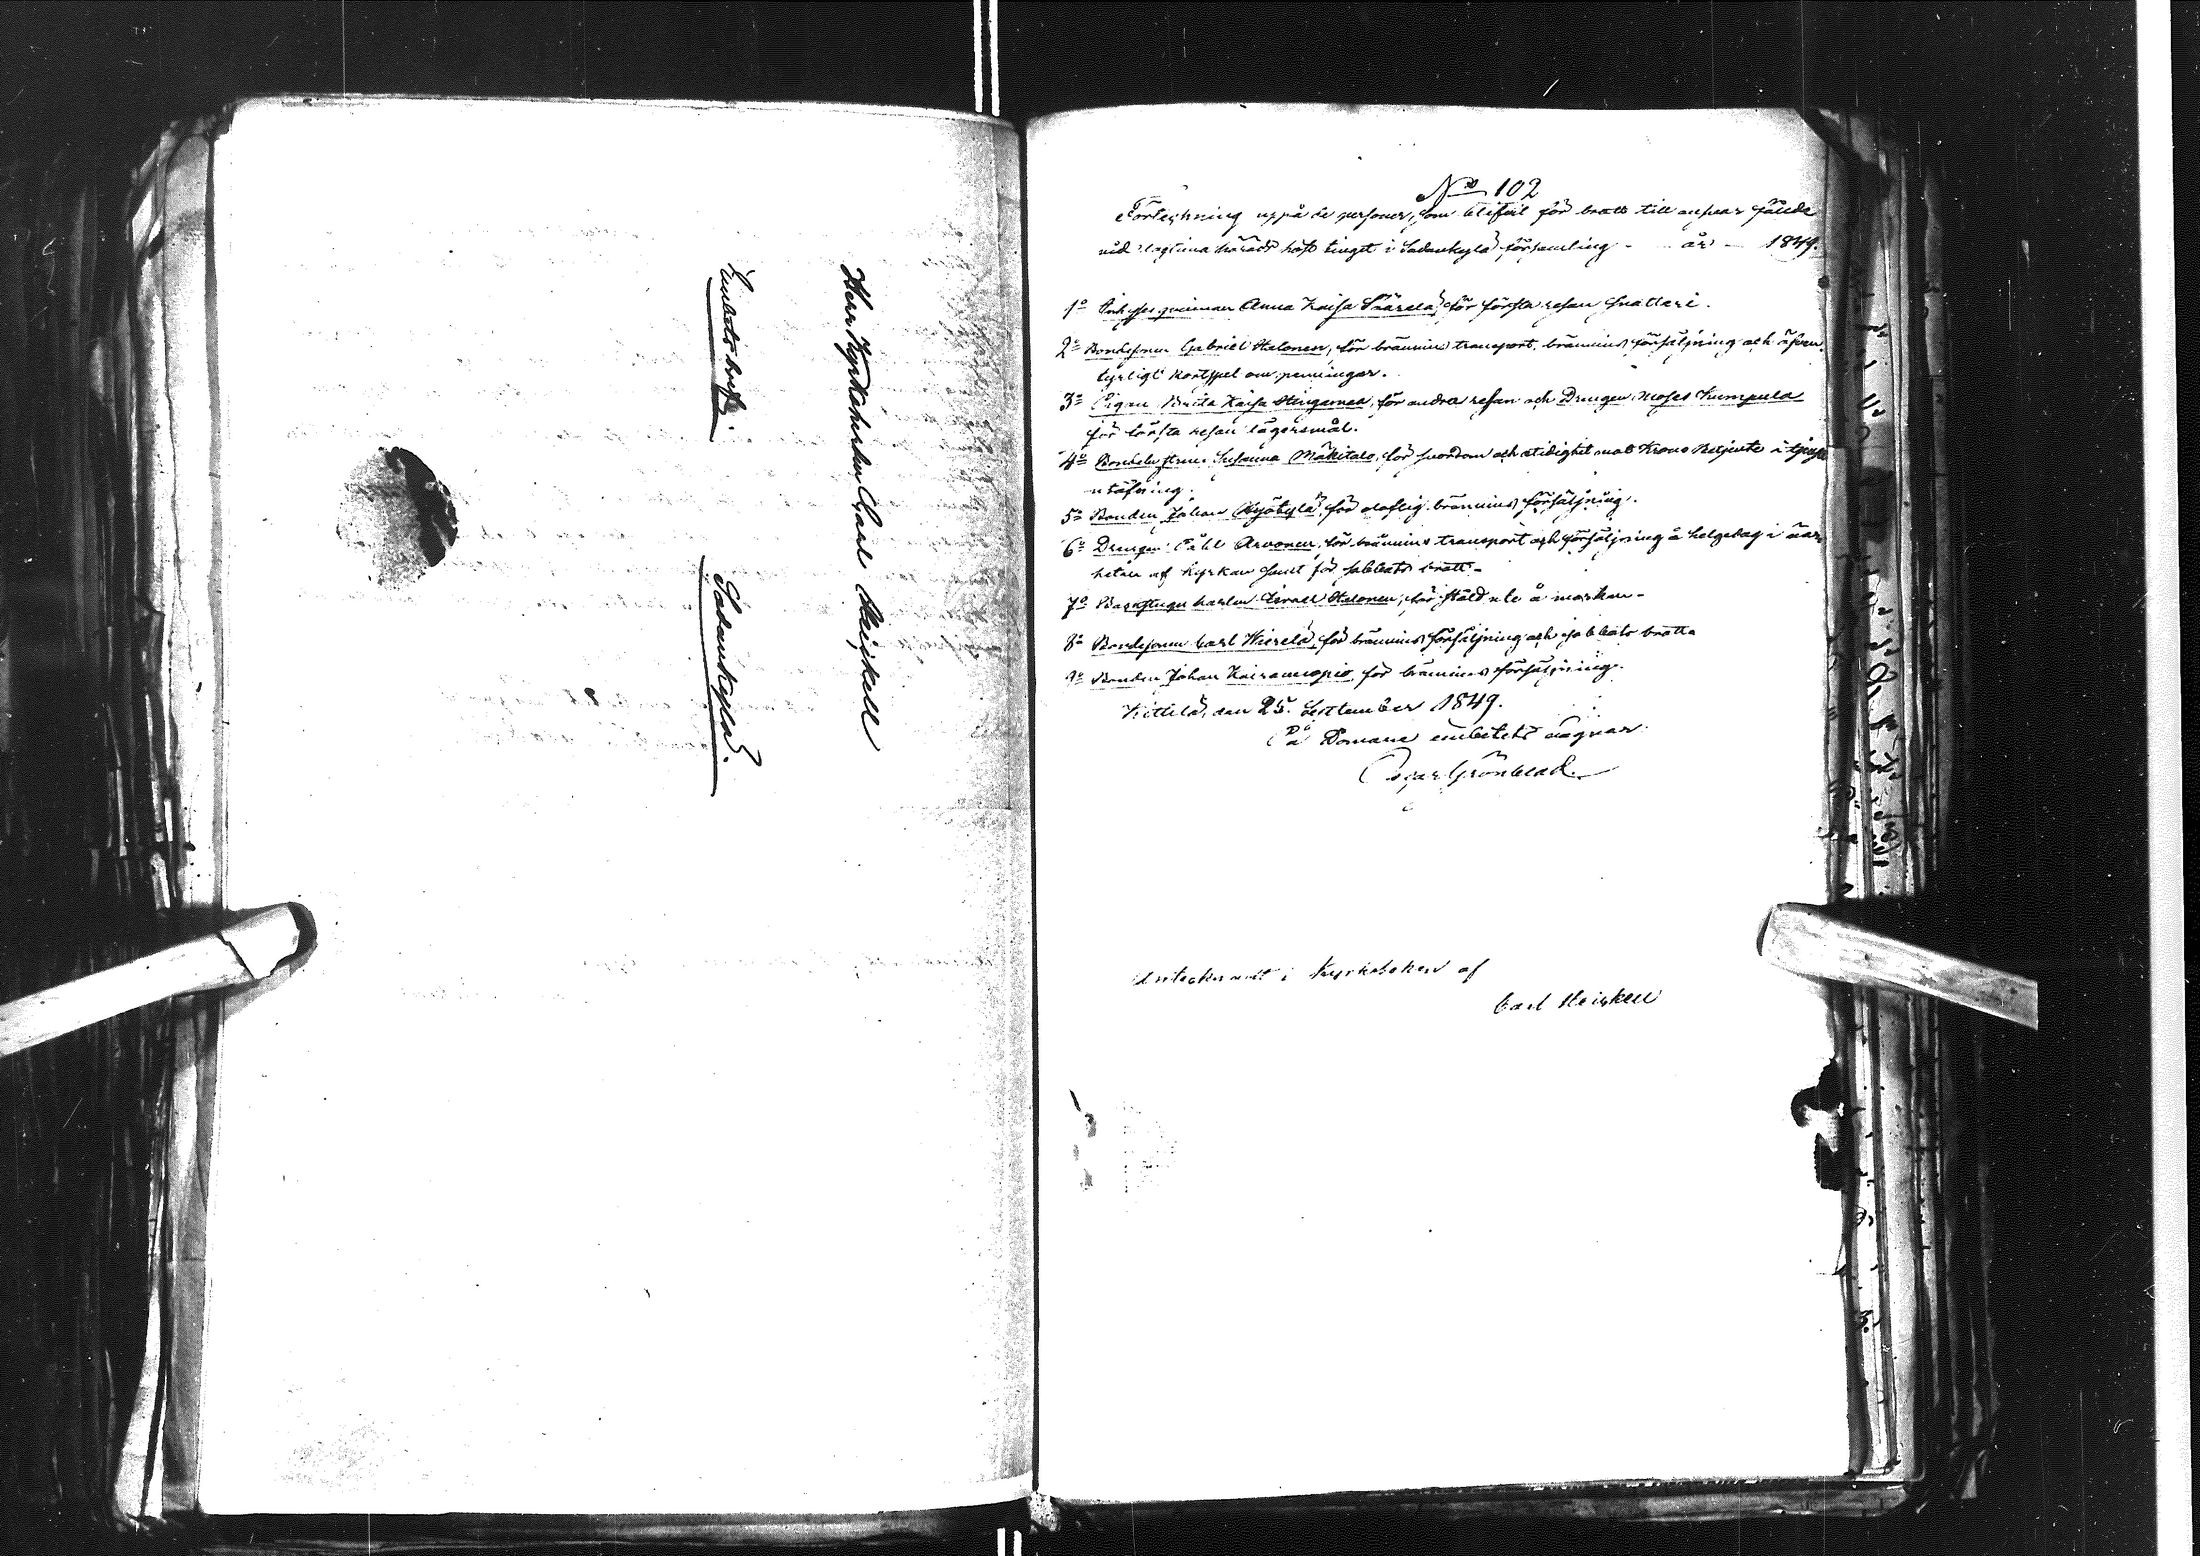 Herr Kyrkoherden Carl Heickell
Embets bref.
Sodankylä.
No 102
Förteckning uppå de personer, som blifvit för brott till ansvar fällde
vid lagtima härads höste tinget i Sodankylä församling - år - 1849.
1o Anna Kaisa Säärelä, för första resan snatteri.
2o Bondesonen Gabriel Halonen, för bränvins transport, bränvins försäljning och äfven-
tyrligt kortspel om penningar.
3o Pigan Brita Kaisa för andra resan och Drengen Moses Kumpula
för första resan lägersmål.
4o Susanna Mäkitalo, för svordom och stidighet mot Krono Betjente i tjenste
utöfning.
5o Bonden Johan Kyökylä, för olaflig bränvins försäljning.
6o Drengen Påhl Arvonen, för bränvins transport och försäljning å helgedag i när-
heten af kyrkan samt för sabbats brott.
7o Israel Halonen, för stöld ute å marken.
8o Bondesonen Carl Wierelä, för bränvins försäljning och sabbats brott.
9o Bonden Johan Kairanuopio, för bränvins försäljning.
Kittilä, den 25. September 1849.
På Domare embetets vägnar
Oscar Grönblad.
Antecknadt i Kyrkoboken af
Carl Heickell